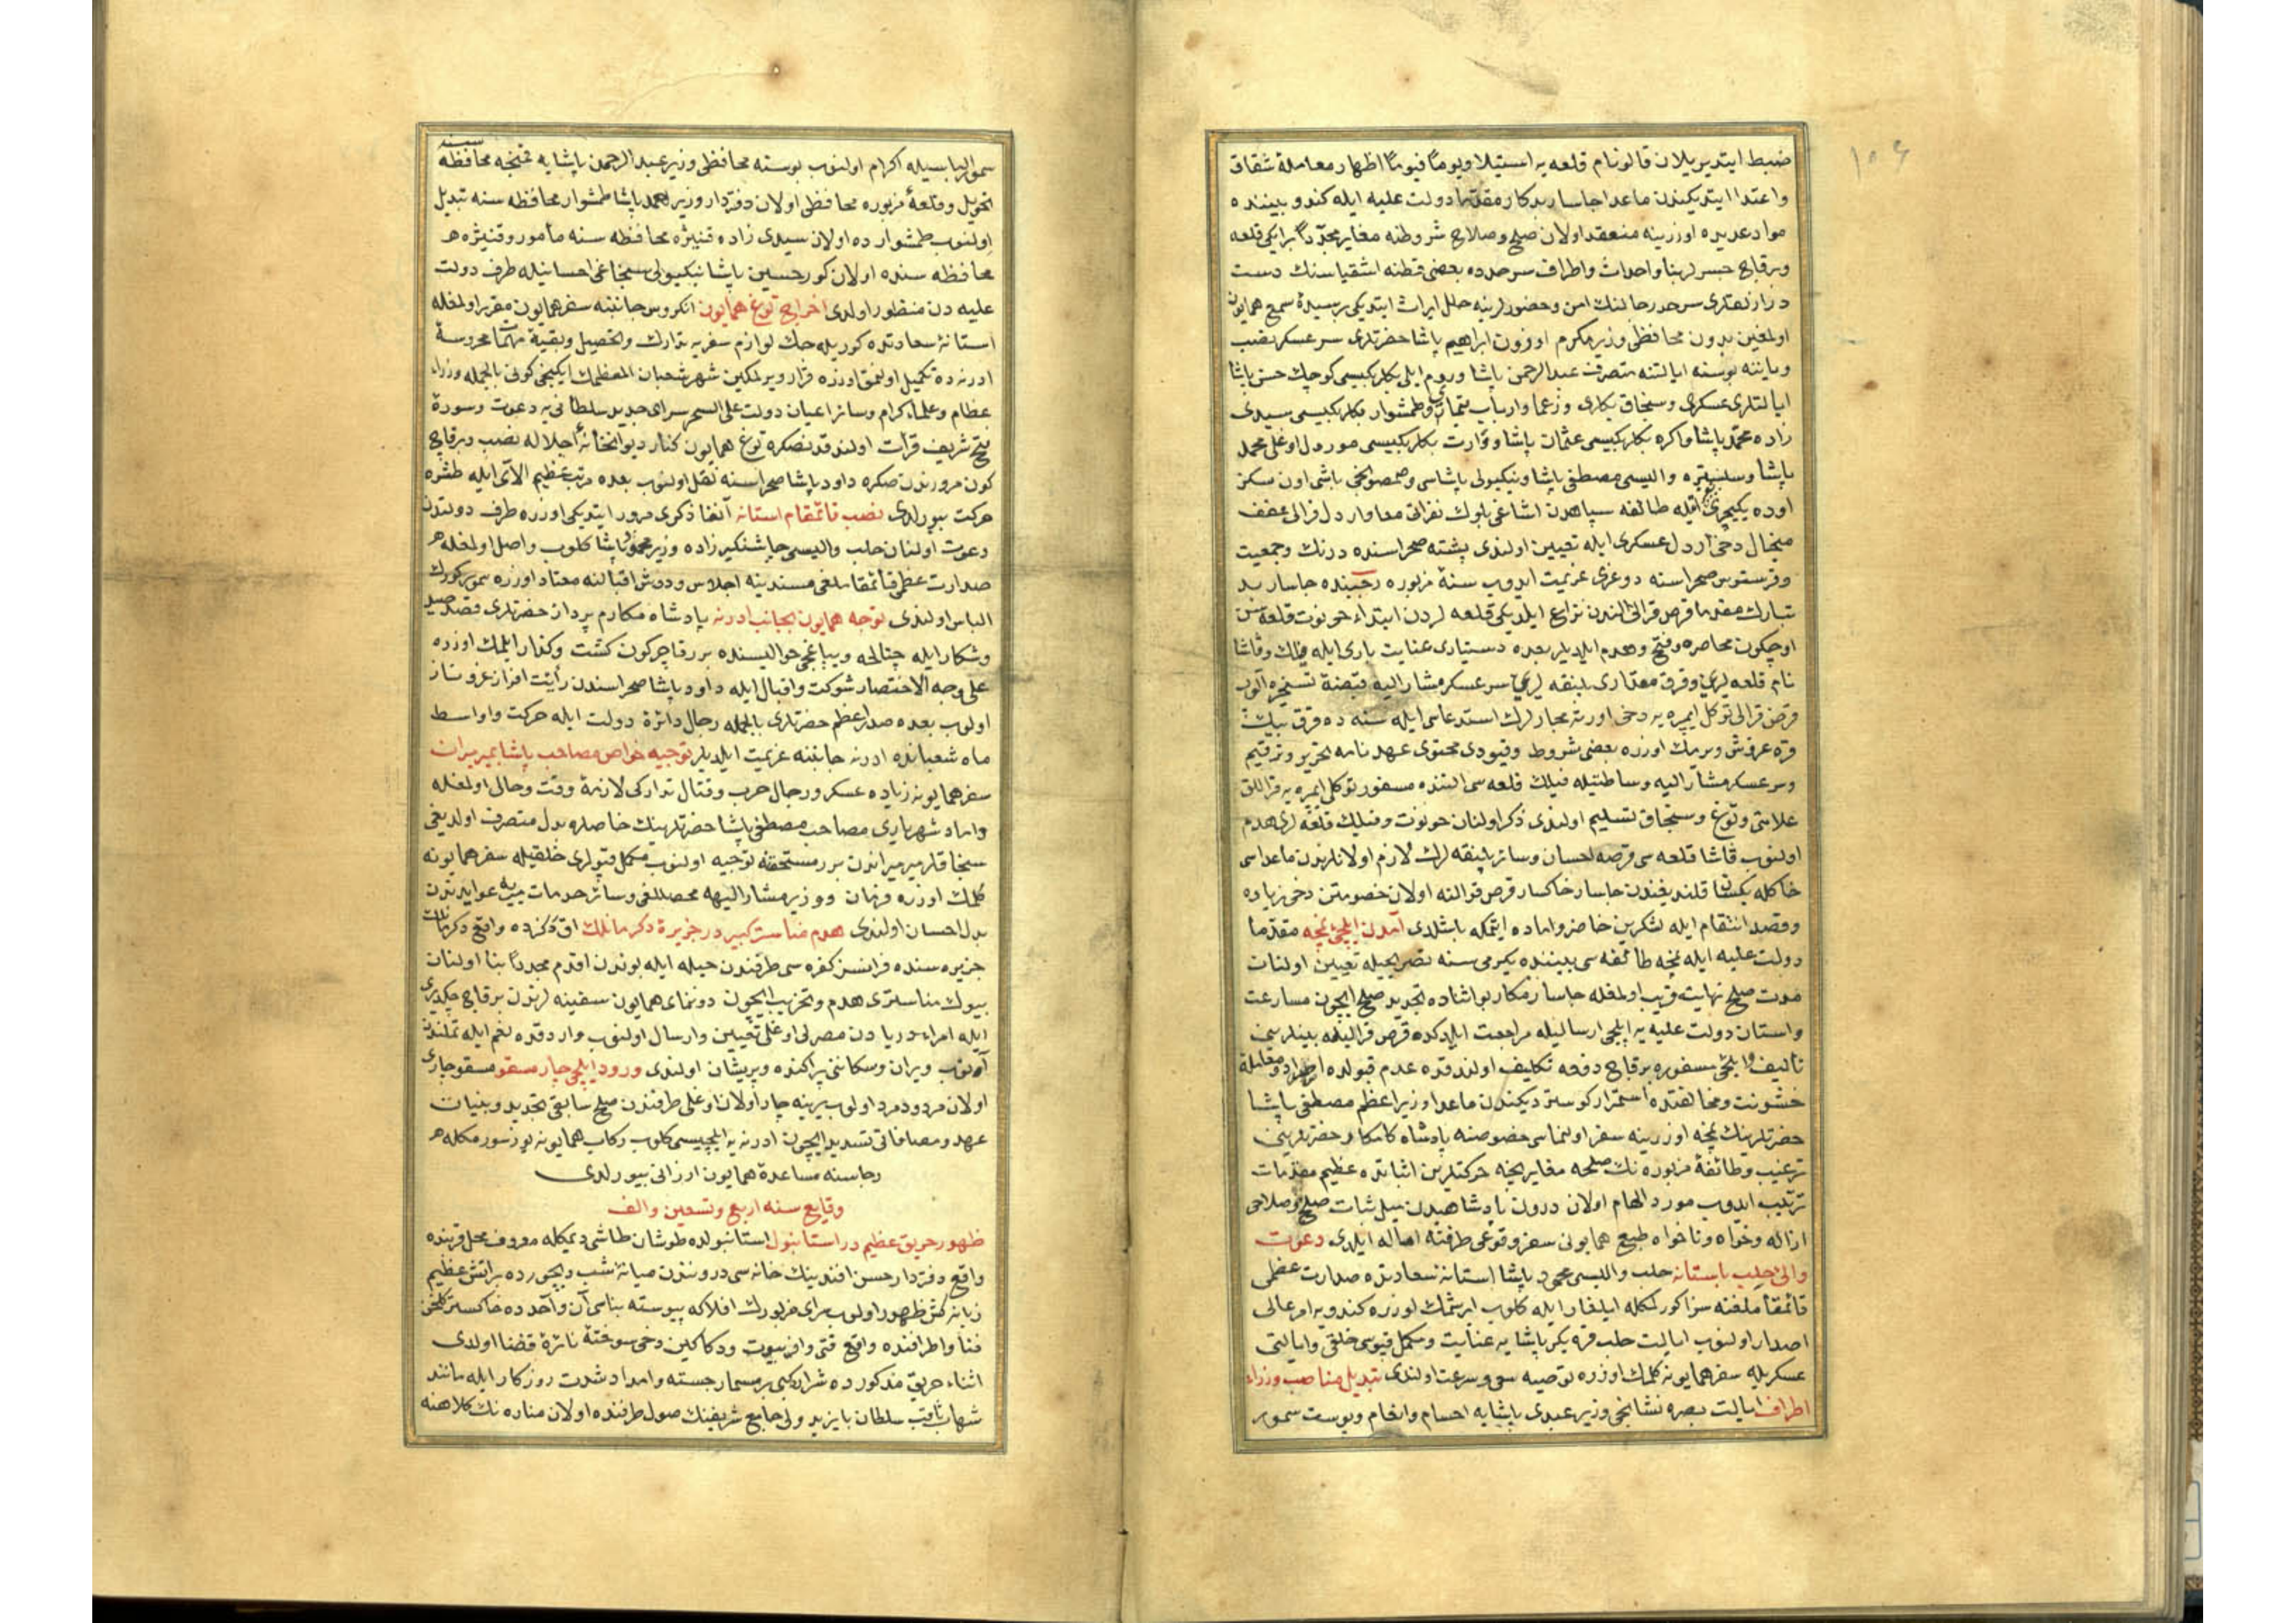 ضبط ایتدیریلان قالونام قلعه یه استیلا ویوماً فیوماً اظهار معاملهٔ شقاق
واعتدا ایتدیکندن ماعدا جاسار بدکار مقدما دولت علیه ایله کندو بیننده
مواد عدیده اوزرینه منعقد اولان صلح وصلاح شروطنه مغایر مجدداً برایکی قلعه
وبرقاچ جسرلر بنا واحداث واطراف سرحدده بعضی فطنه اشقیاسنك دست
درازلقلری سرحد رحالنك امن وحضورلرینه خلل ایراث ایتدیکی رسیدهٔ سمع همایون
اولمغین بدون محافظی وزیر مکرم اوزون ابراهیم پاشا حضرتلری سرعسکر نصب
ویاننه بوسنه ایالتنه متصرف عبدالرحمن پاشا وروم ایلی بکلربکیسی کوچك حسن پاشا
ایالتلری عسکری وسنجاق بکلری وزعما وارباب تیمار وطمشوار بکلربکیسی سیدی
زاده محمد پاشا واکره بکلربکیسی عثمان پاشا ووارت بکلربکیسی موردل اوغلی محمد
پاشا وسلستره والیسی مصطفی پاشا ونیکبولی پاشاسی وصمصونجی باشی اون سکز
اوده یکیچری ایله طائفه سپاهدن اشاغی بلوك نفراتی معا واردل قرالی عفف
میخال دخی اردل عسکری ایله تعیین اولندی پشته صحراسنده درنك وجمعیت
صحراسنه دوغری عزیمت ایدوب سنهٔ مزبوره رجبنده جاسار بد
تبارك مقدما قرص قرالی الندن نزاع ایلدیکی قلعه لردن ابتداء حونوت قلعه سن
اوچکون محاصره وفتح وهدم ایلدیلر بعده دستیاری عنایت باری ایله فیلك وقاشا
نام قلعه لری وقرق مقداری پلنقه لری سرعسکر مشارالیه قبضهٔ تسخیره آلوب
قرص قرالی توکل ایمره یه دخی اورته مجارلرك استدعاسی ایله سنه ده قرق بیك
قره غروش ویرمك اوزره بعضی شروط وقیودی محتوی عهدنامه تحریر وترقیم
وسرعسکر مشارالیه وساطتیله فیلك قلعه سی التنده مسفور توکلی ایمره یه قراللق
علامتی وتوغ وسنجاق تسلیم اولندی ذکر اولنان حونوت وفیلك قلعه لری هدم
اولنوب قاشا قلعه سی قرصه احسان وسائر پلنقه لرك لازم اولانلرندن ماعداسی
خاکله یکسان قلندیغندن جاسار خاکسار قرص قرالنه اولان خصومتن دخی زیاده
وقصد انتقام ایله لشکرین حاضر واماده ایتمکه باشلدی آمدن ایلچی نمچه مقدما
دولت علیه ایله نمچه طائفه سی بیننده یکرمی سنه تصریحیله تعیین اولنان
مدت صلح نهایته قریب اولمغله جاسار مکار بو اثناده تجدید صلح ایچون مسارعت
واستان دولت علیه یه ایلچی ارسالیله مراجعت ایلدکده قرص قرالیله بینلرینی
تألیف ایلچی مسفوره برقاچ دفعه تکلیف اولندقده عدم قبولده اصرار ومعامله
خشونت ومخالفتده استمرار کوستردیکندن ماعدا وزیر اعظم مصطفی پاشا
حضرتلرینك نمچه اوزرینه سفر اولنماسی خصوصنه پادشاه کامکار حضرتلرینی
ترغیب وطائفهٔ مزبوره نك صلحه مغایر نیجه حرکتلرین اثباتده عظیم مقدمات
ترتیب ایدوب مورد الهام اولان درون پادشاهیدن میل ثبات صلح وصلاحی
ازاله وخواه وناخواه طبع همایونی سفر وقوعی طرفنه اماله ایلدی دعوت
والئ حلب باستانه حلب والیسی محمود پاشا استانهٔ سعادتده صدارت عظمی
قائمقاملغنه سزا کورلمکله ایلغار ایله کلوب ایرشمك اوزره کندویه امر عالی
اصدار اولنوب ایالت حلب قره بکر پاشایه عنایت ومکمل قپوسی خلقی وایالتی
عسکریله سفر همایونه کلمك اوزره توصیه سی وسرعت اولندی تبدیل مناصب وزراء
اطراف ایالت بصره نشانجی وزیر عبدی پاشایه احسان وانعام وپوست سمور
سمور الباسیله اکرام اولنوب بوسنه محافظی وزیر عبدالرحمن پاشایه قمنیچه محافظه سنه
تحویل وقلعهٔ مزبوره محافظی اولان دفتردار وزیر احمد پاشا طمشوار محافظه سنه تبدیل
اولنوب طمشوارده اولان سیدی زاده قنیژه محافظه سنه مأمور وقنیژه
محافظه سنده اولان کور حسین پاشا نیکبولی سنجاغی احسانیله طرف دولت
علیه دن منظور اولدی اخراج توغ همایون انکروس جانبنه سفر همایون مقرر اولمغله
استانهٔ سعادتده کوریله جك لوازم سفریه تدارك وتحصیل وبقیهٔ مهمات محروسهٔ
ادرنه ده تکمیل اولنمق اوزره قرار ویرلمکین شهر شعبان المعظمك ایکنجی کونی بالجمله وزراء
عظام وعلماء کرام وسائر اعیان دولت علی السحر سرای جدید سلطانی یه دعوت وسورهٔ
فتح شریف قرأت اولندقدنصکره توغ همایون کنار دیوانخانهٔ اجلاله نصب وبرقاچ
کون مرورندن صکره داود پاشا صحراسنه نقل اولنوب بعده مرتب عظیم الای ایله طشره
حرکت بیورلدی نصب قائمقام استانه آنفا ذکری مرور ایتدیکی اوزره طرف دولتدن
دعوت اولنان حلب والیسی چاشنکیر زاده وزیر محمود پاشا کلوب واصل اولمغله
صدارت عظمی قائمقاملغی مسندینه اجلاس ودوش اقبالنه معتاد اوزره سمور کورك
الباس اولندی توجه همایون بجانب ادرنه پادشاه مکارم پرداز حضرتلری قصد صید
وشکار ایله چتالجه ویپاغجی حوالیسنده بر قاچ کون کشت وکذار ایلمك اوزره
علی وجه الاختصار شوکت واقبال ایله داود پاشا صحراسندن رأیت افراز عز وناز
اولوب بعده صدراعظم حضرتلری بالجمله رجال دائرهٔ دولت ایله حرکت واواسط
ماه شعبانده ادرنه جانبنه عزیمت ایلدیلر توجیه خواص مصاحب پاشا بمیرمیران
سفر همایونه زیاده عسکر ورجال حرب وقتال تدارکی لازمهٔ وقت وحال اولمغله
داماد شهریاری مصاحب مصطفی پاشا حضرتلرینك خاصلره بدل متصرف اولدیغی
سنجاقلر میرمیراندن برر مستحقنه توجیه اولنوب مکمل قپولری خلقیله سفر همایونه
کلمك اوزره فرمان ووزیر مشارالیهه محصللغی وسائر خدمات میریه عوایدندن
بدل احسان اولندی هدم مناستر کبیر در جزیرهٔ دکرمانلك اق دکزده واقع دکرمانلك
جزیره سنده فرانسز کفره سی طرفندن حیله ایله بوندن اقدم مجدداً بنا اولنان
بیوك مناستری هدم وتخریب ایچون دونمای همایون سفینه لرندن برقاچ چکدیری
ایله امراء دریادن مصرلی اوغلی تعیین وارسال اولنوب واردقده لغم ایله تملندن
آلنوب ویران وسکاننی پراکنده وپریشان اولندی ورود ایلچی چار مسقو مسقو چاری
اولان مردود مرد اولوب یرینه چار اولان اوغلی طرفندن صلح سابقی تجدید وبنیات
عهد ومصافاتی تشدید ایچون ادرنه یه ایلچیسی کلوب رکاب همایونه یوز سورمکله
رجاسنه مساعدهٔ همایون ارزانی بیورلدی
وقایع سنه اربع وتسعین والف
ظهور حریق عظیم در استانبول استانبولده طوشان طاشی دیمکله معروف محل قربنده
واقع دفتردار حسن افندینك خانه سی دروننده میانهٔ شب دیجورده بر آتش عظیم
زبانه کش ظهور اولوب سرای مزبورك افلاکه پیوسته بناسی آن واحدده خاکستر کلخن
فنا واطرافنده واقع قتی وافر بیوت ودکاکین دخی سوختهٔ نائرهٔ قضا اولدی
اثناء حریق مذکورده شراره کبی بر مسمار جسته وامداد شدت روزکار ایله مانند
شهاب ثاقب سلطان بایزید ولی جامع شریفنك صول طرفنده اولان مناره نك کلاهنه